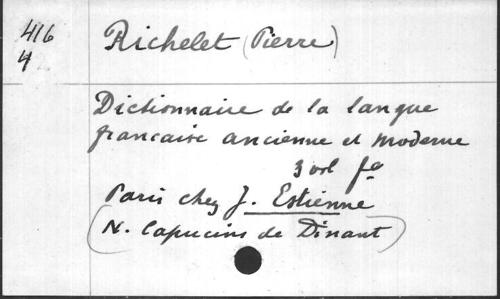 416
4
Richelet (Pierre)
Dictionnaire de la langue
francaise ancienne et moderne
3 vol fo
Paris chez J. Estienne
(N. Capucins de Dinant)